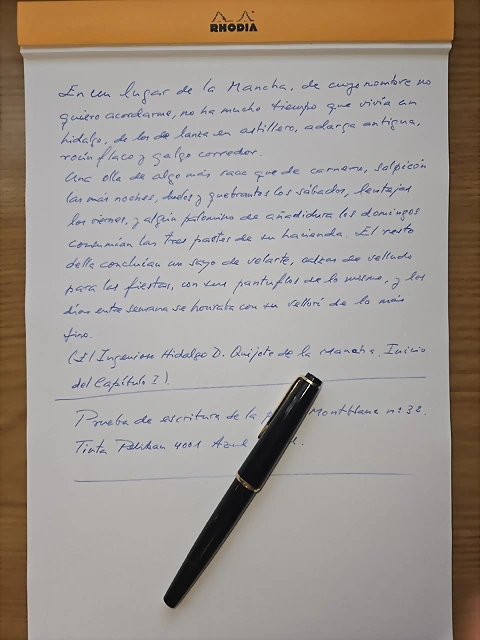 RHODIA
En un lugar de la Mancha, de cuyo nombre no
quiero acordarme, no ha mucho tiempo que vivía un
hidalgo, de los de lanza en astillero, adarga antigua,
rocín flaco y galgo corredor.
Una olla de algo más vaca que de carnero, salpicón
las más noches, duelos y quebrantos los sábados, lentejas
los viernes, y algún palomino de añadidura los domingos
consumían las tres partes de su hacienda. El resto
della concluían un sayo de velarte, calzas de velludo
para las fiestas, con sus pantuflos de lo mismo, y los
días entre semana se honraba con su vellorí de lo más
fino.
(El Ingenioso Hidalgo D. Quijote de la Mancha. Inicio
del Capítulo I).
Prueba de escritura de la Montblanc nº 32.
Tinta Pelikan 4001 Azul